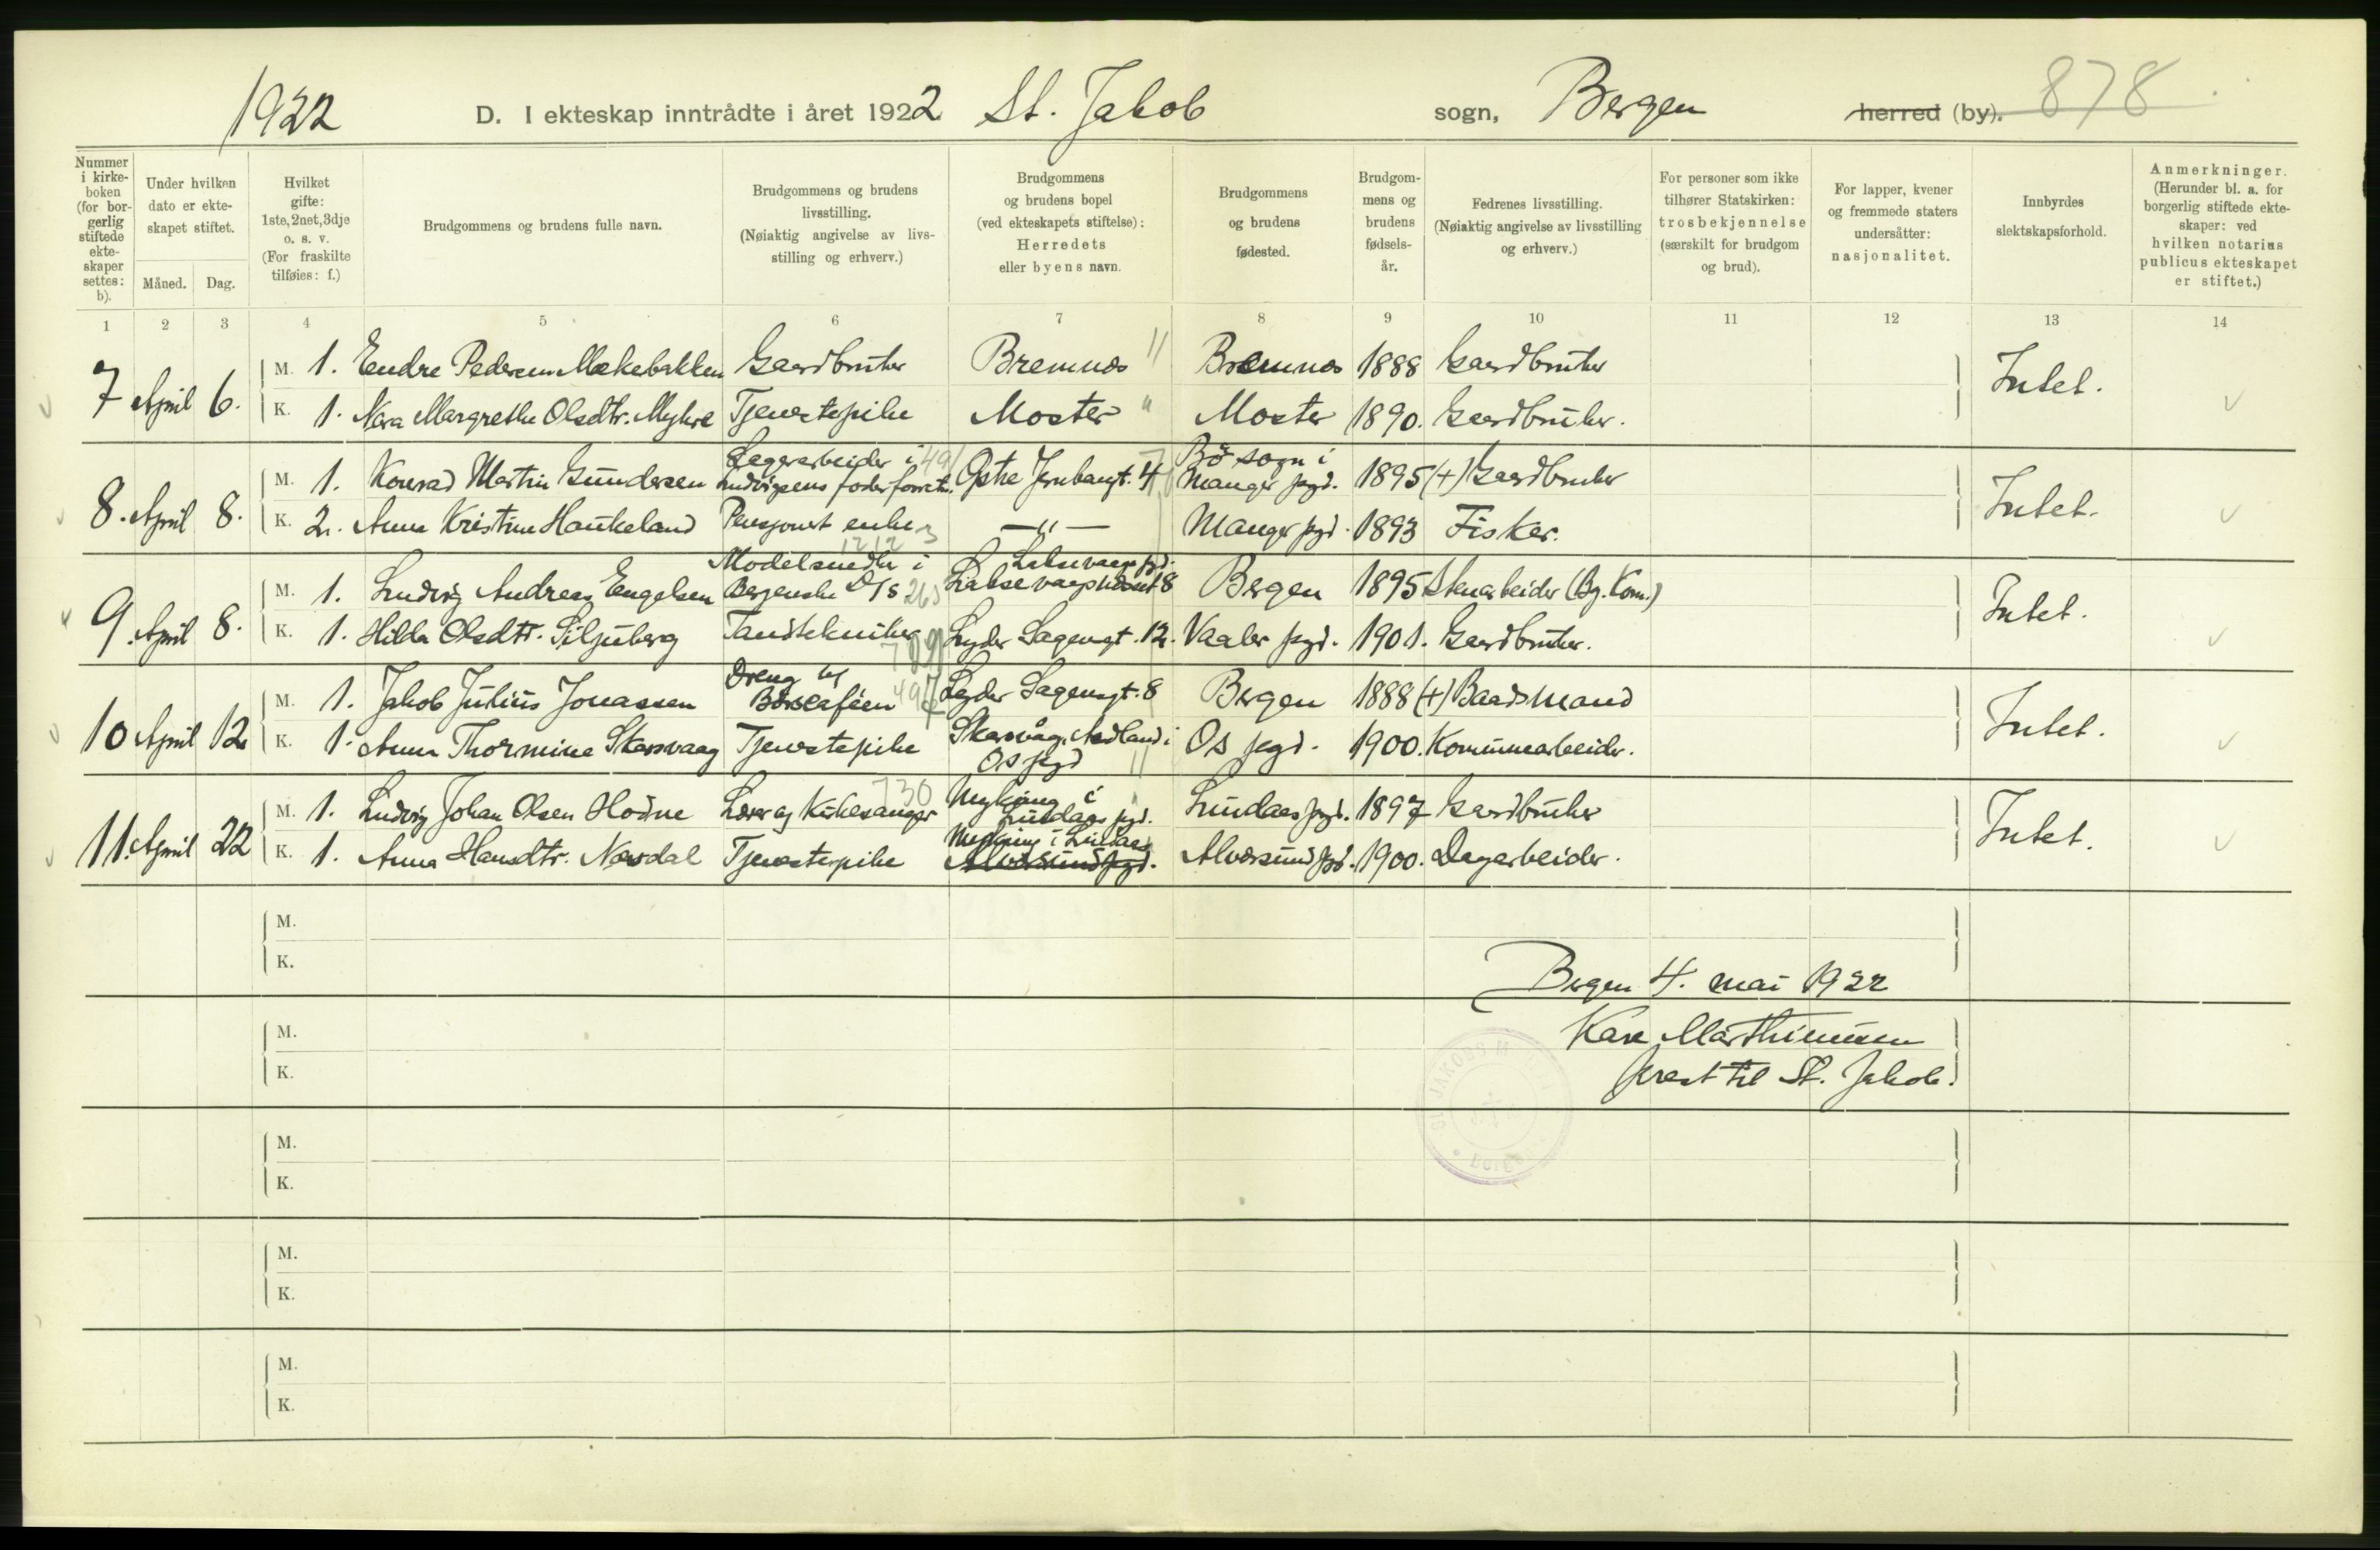 1922 D. I ekteskap inntrådte i året 1922 St. Jakob sogn, Bergen herred (by). 878
Nummer i kirke-boken (for bor-gerlig stiftede ekte-skaper settes: b).
Under hvilken dato er ekte-skapet stiftet.
Måned. Dag.
Hvilket gifte: 1ste, 2net, 3dje o. s. v. (For fraskilte tilføies: f.)
Brudgommens og brudens fulle navn.
Brudgommens og brudens livsstilling. (Nøiaktig angivelse av livs-stilling og erhverv.)
Brudgommens og brudens bopel (ved ekteskapets stiftelse): Herredets eller byens navn.
Brudgommens og brudens fødested.
Brudgom-mens og brudens fødsels-år.
Fedrenes livsstilling. (Nøiaktig angivelse av livsstilling og erhverv.)
For personer som ikke tilhører Statskirken: trosbekjennelse (særskilt for brudgom og brud).
For lapper, kvener og fremmede staters undersåtter: nasjonalitet.
Innbyrdes slektskapsforhold.
Anmerkninger. (Herunder bl. a. for borgerlig stiftede ekte-skaper: ved hvilken notarius publicus ekteskapet er stiftet.)
1 2 3 4 5 6 7 8 9 10 11 12 13 14
7 April 6. M. 1. Endre Pedersen Mækebakken Gaardbruker Bremnes " Bremnes 1888 Gaardbruker Intet.
K. 1. Nora Margrethe Olsdtr. Myhre Tjenestepike Moster " Moster 1890. Gaardbruker.
8. April 8. M. 1. Konrad Martin Gundersen Lagerarbeider i Ludvigsens foderforretn. Østre Jernbanegt. 4 Bø sogn i Manger pgd. 1895 (+) Gaardbruker Intet.
K. 2. Anna Kristine Haukeland Pensjonert enke — " — Manger pgd. 1893 Fisker.
9. April 8. M. 1. Ludvig Andreas Engelsen Modelsnedker i Bergenske D/S 265 Laksevaag pgd. Laksevaagneset 8 Bergen 1895 Stenarbeider (Bg. Kom.) Intet.
K. 1. Hilda Olsdtr. Siljuberg Tandtekniker Lyder Sagensgt. 12. Vaaler pgd. 1901. Gaardbruker.
10 April 12 M. 1. Jakob Julius Jonassen Dreng ved Børscafeen Lyder Sagensgt. 8 Bergen 1888 (+) Baadsmand Intet.
K. 1. Anna Thormine Skarsvaag Tjenestepike Skarsvåg, Nedland i Os pgd Os pgd. 1900. Kommunearbeider.
11. April 22 M. 1. Ludvig Johan Olsen Hodne Lærer og Kirkesanger 730 Myking i Lindaas pgd. Lindaas pgd. 1897 Gaardbruker Intet.
K. 1. Anna Hansdtr. Næsdal Tjenestepike Myking i Lindaas Alversund pgd. Alversund pgd. 1900. Dagarbeider.
M.
K.
Bergen 4. mai 1922
M.
Kåre Marthinussen
K.
prest til St. Jakob.
M.
K.
M.
K.
M.
K.